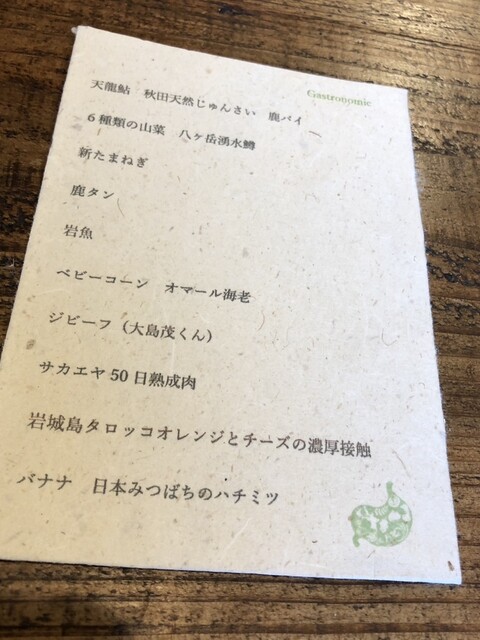 Gastronomic
天龍鮎　秋田天然じゅんさい　鹿パイ
6種類の山菜　八ヶ岳湧水鱒
新たまねぎ
鹿タン
岩魚
ベビーコーン　オマール海老
ジビーフ（大島茂くん）
サカエヤ50日熟成肉
岩城島タロッコオレンジとチーズの濃厚接触
バナナ　日本みつばちのハチミツ